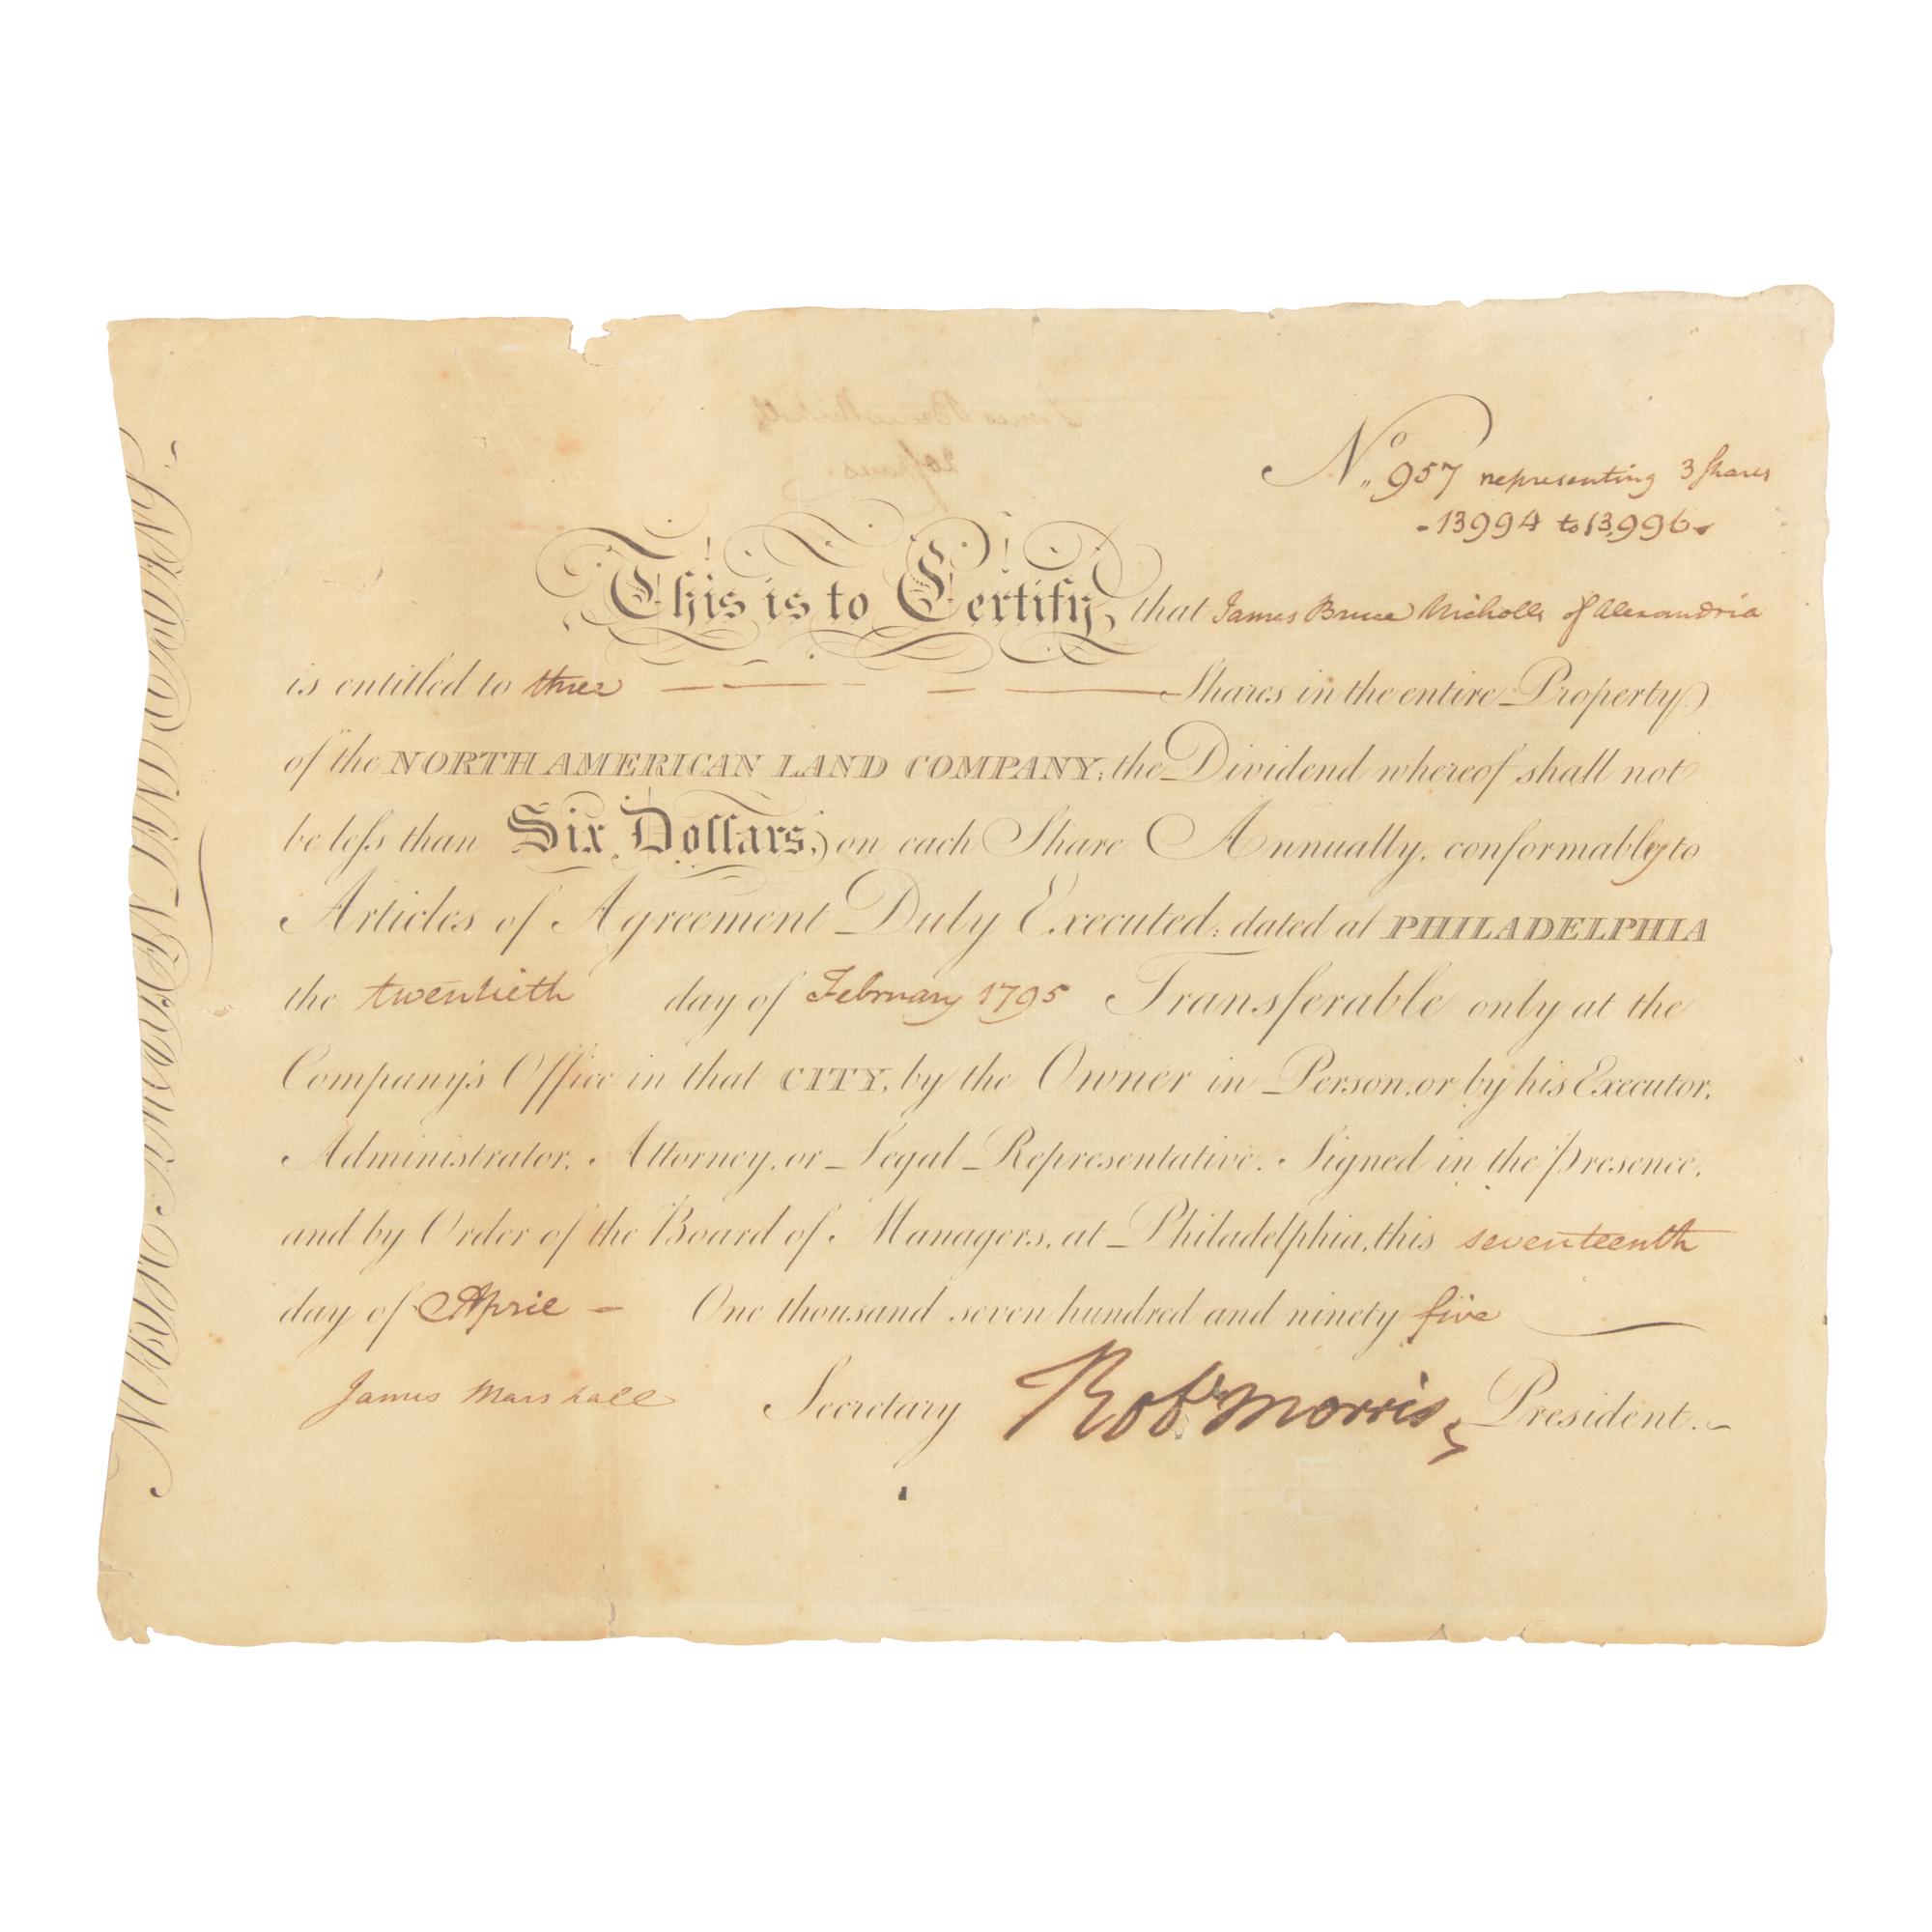 No. 957 representing 3 Shares
- 13994 to 13,996 -
This is to Certify, that James Bruce Nicholls of Alexandria
is entitled to three Shares in the entire Property
of the NORTH AMERICAN LAND COMPANY; the Dividend whereof shall not
be less than Six Dollars, on each Share Annually, conformably to
Articles of Agreement Duly Executed: dated at PHILADELPHIA
the twentieth day of February 1795 Transferable only at the
Company's Office in that CITY, by the Owner in Person, or by his Executor,
Administrator, Attorney, or Legal Representative. Signed in the presence,
and by Order of the Board of Managers, at Philadelphia, this seventeenth
day of April - One thousand seven hundred and ninety five
James Marshall Secretary Robt Morris President.